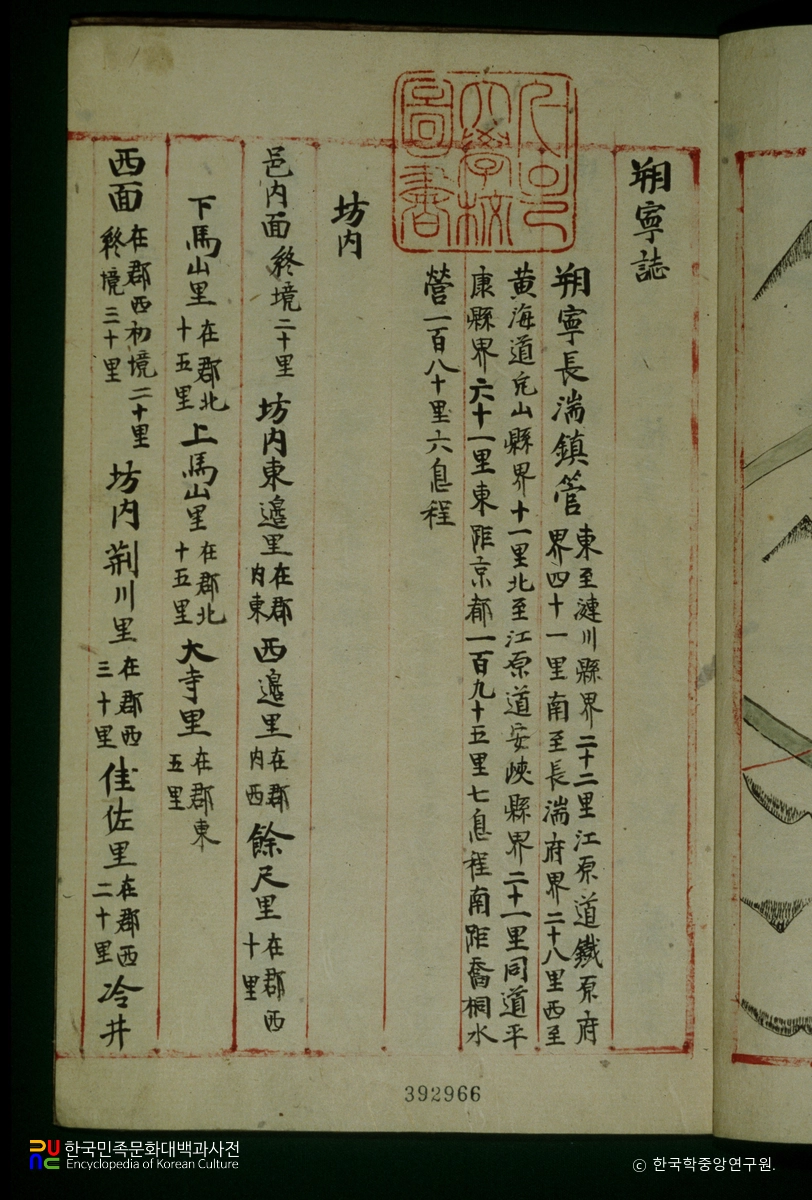 朔寧誌
서울大學校圖書
朔寧長湍鎮管東至漣川縣界二十二里江原道鐵原府
界四十一里南至長湍府界二十八里西至
黃海道兎山縣界十一里北至江原道安峽縣界二十一里同道平
康縣界六十一里東距京都一百九十五里七息程南距喬桐水
營一百八十里六息程
坊內
邑內面終境二十里坊內東邊里在郡內東西邊里在郡內西餘尺里在郡西十里
下馬山里在郡北十五里上馬山里在郡北十五里大寺里在郡東五里
西面在郡西初境二十里終境三十里坊內荊川里在郡西三十里佳佐里在郡西二十里冷井
392966
한국민족문화대백과사전
Encyclopedia of Korean Culture
ⓒ 한국학중앙연구원.